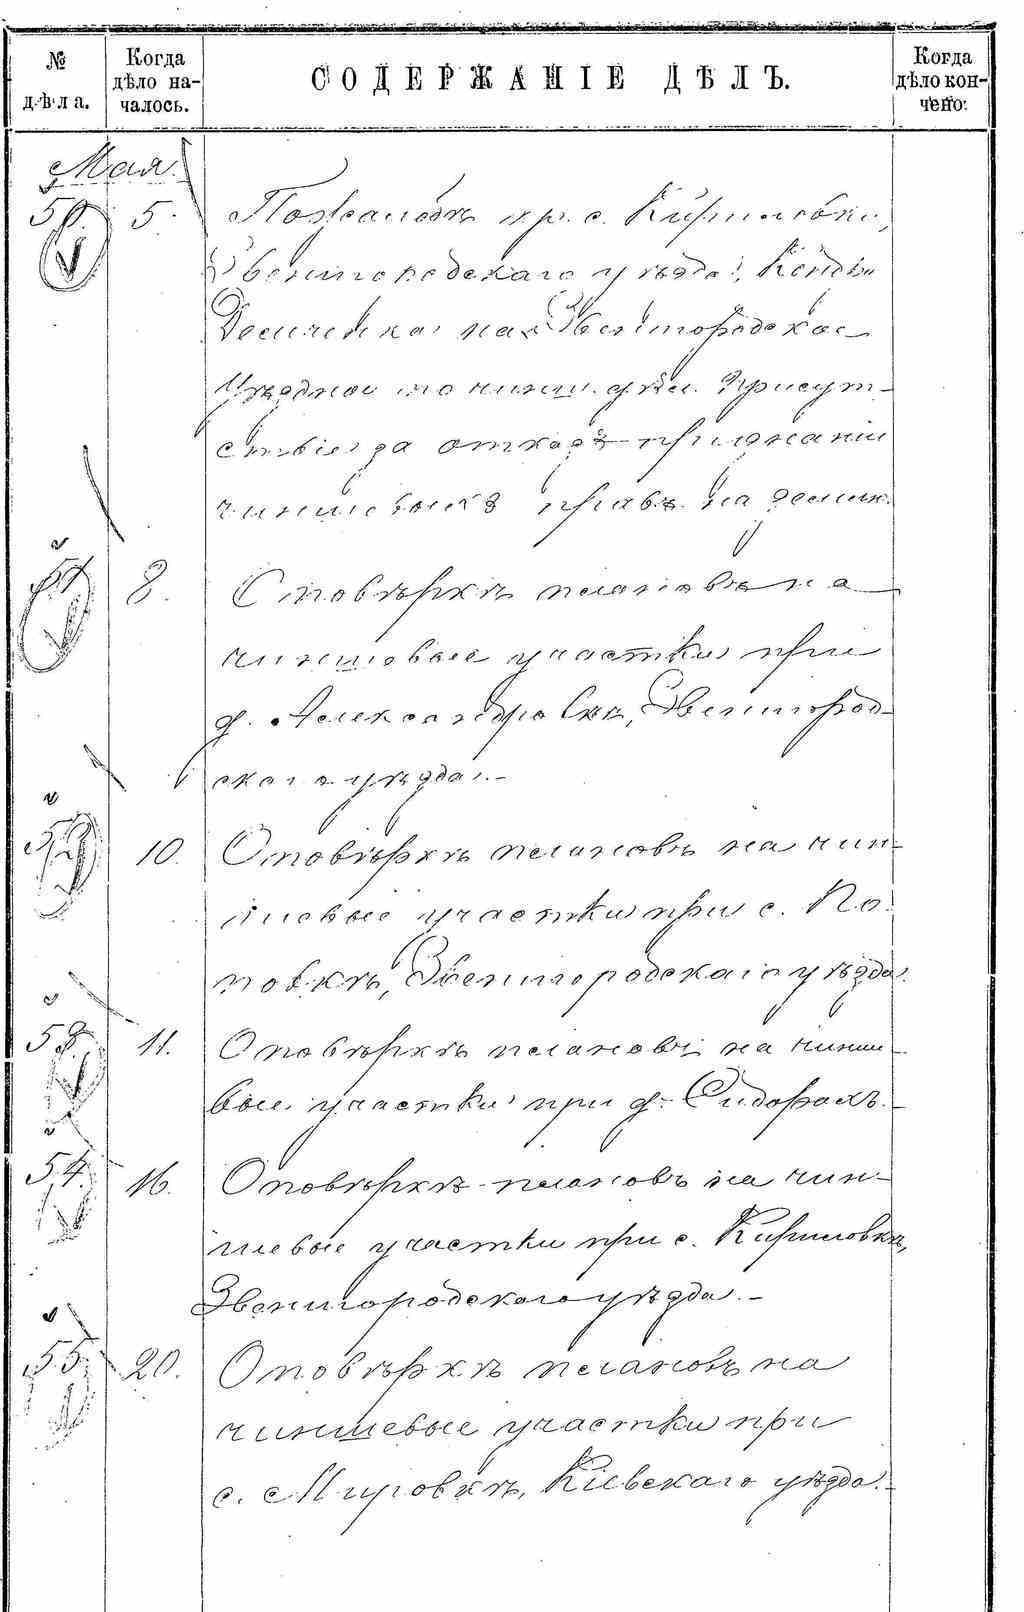 № дѣла.
Когда дѣло началось.
СОДЕРЖАНІЕ ДѢЛЪ.
Когда дѣло кончено:
Мая.
50. 5. По жалобѣ кр. с. Кириловки,
Звенигородскаго уѣзда,
на Звенигородское
Уѣздное по чинш. дѣл. Присут-
ствіе за отказъ признаніи
чиншевыхъ правъ на землю.
51. 8. О повѣркѣ плановъ на
чиншевые участки при
д. Александровкѣ, Звенигород-
скаго уѣзда.-
52. 10. О повѣркѣ плановъ на чин-
шевые участки при с. По-
повкѣ, Звенигородскаго уѣзда.
53. 11. О повѣркѣ плановъ на чинше-
вые участки при д. Сидорахъ.-
54. 16. О повѣркѣ плановъ на чин-
шевые участки при с. Кириловкѣ,
Звенигородскаго уѣзда.-
55. 20. О повѣркѣ плановъ на
чиншевые участки при
с. Мировкѣ, Кіевскаго уѣзда.-